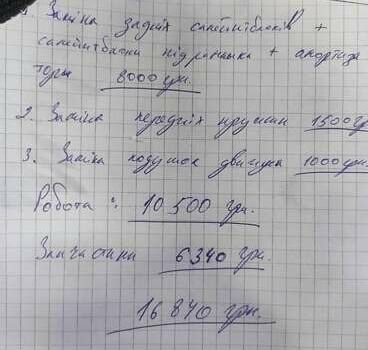 1. Заміна задніх сайлентблоків +
сайлентблоки підрамника + амортиза
тори 8000 грн.
2. Заміна передніх пружин 1500 гр
3. Заміна подушок двигуна 1000 грн.
Робота: 10 500 грн.
Запчастини 6340 грн.
16 840 грн.